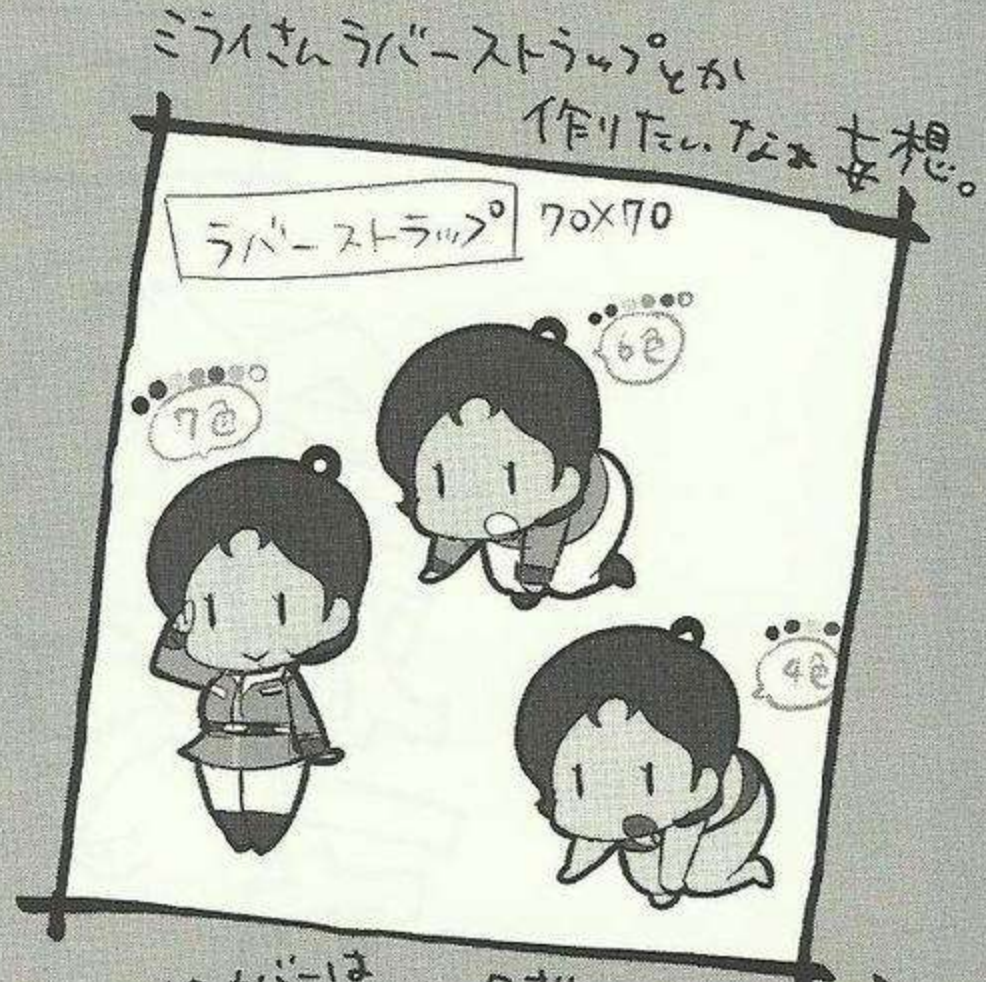 ミライさんラバーストラップとか
作りたいなぁ妄想。
ラバーストラップ 70×70
6色
7色
4色